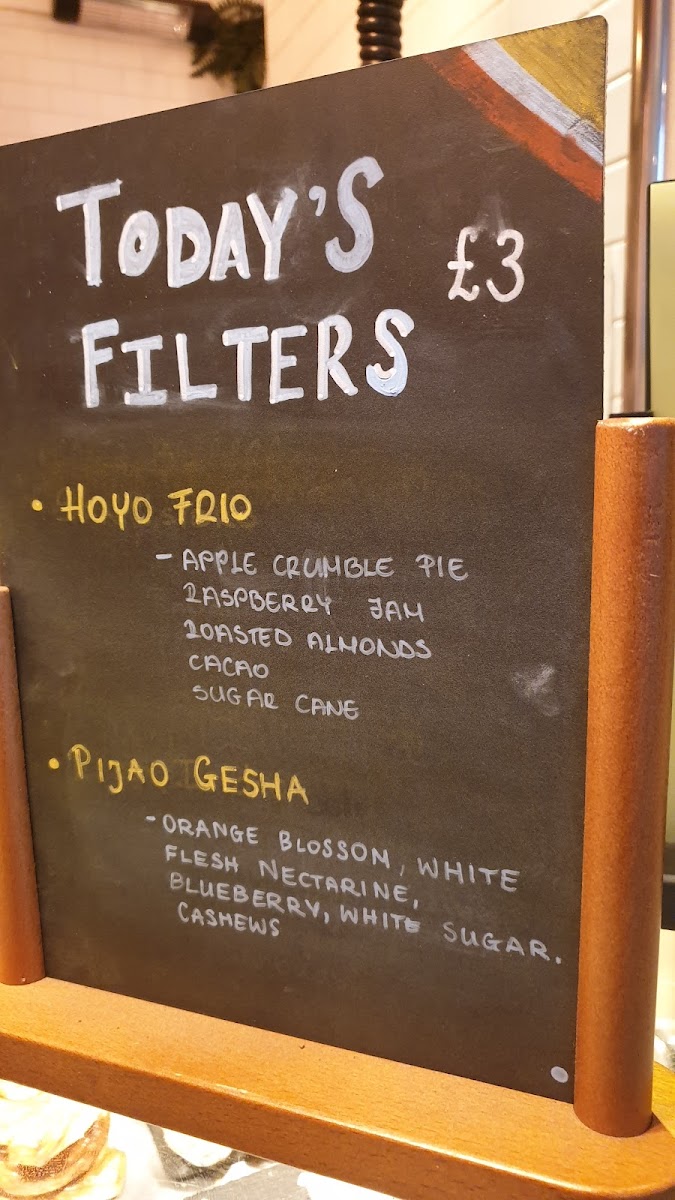 TODAY'S
£3
FILTERS
• HOYO FRIO
- APPLE CRUMBLE PIE
RASPBERRY JAM
ROASTED ALMONDS
CACAO
SUGAR CANE
• PIJAO GESHA
- ORANGE BLOSSOM, WHITE
FLESH NECTARINE,
BLUEBERRY, WHITE SUGAR.
CASHEWS